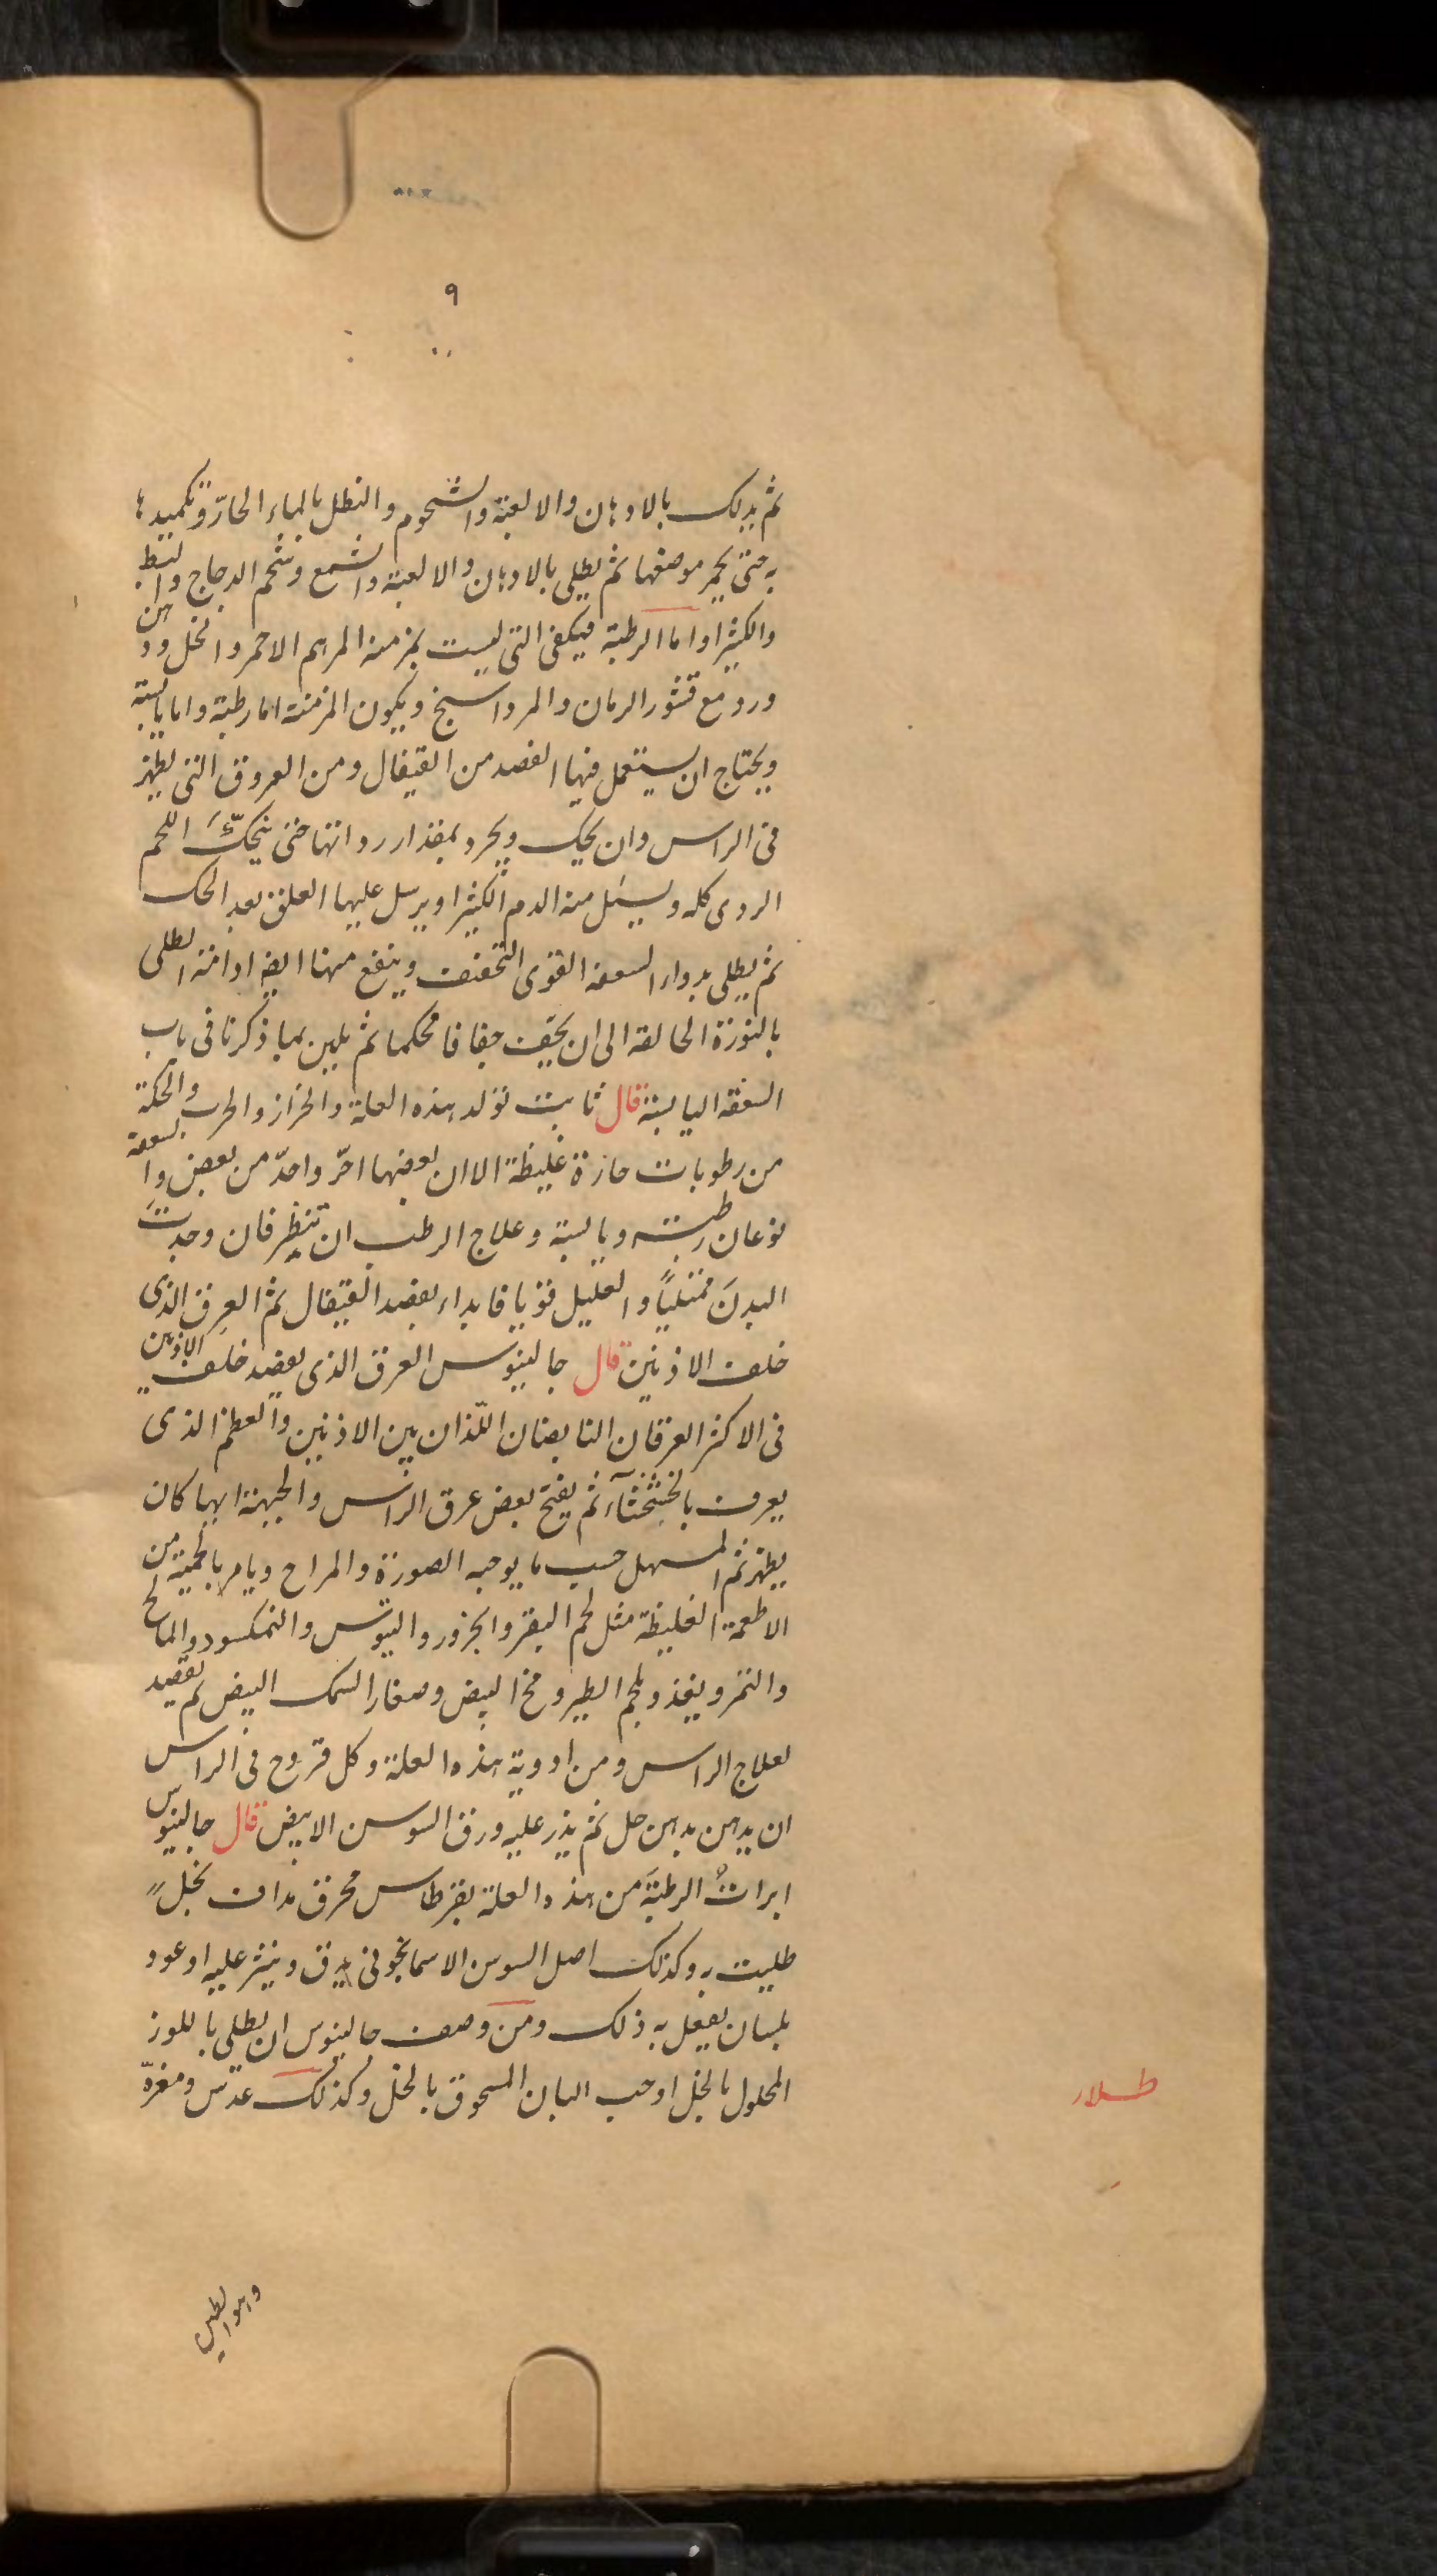 ٩
ثم يدلك بالادهان والالعبة والشحوم والنطل بالماء الحارّ وتكميدها
به حتى يحمر موضعها ثم يطلى بالادهان والالعبة والشمع وشحم الدجاج والبط
والكثيرا واما الرطبة فيكفى التى ليست بمزمنة المرهم الاحمر والخل ودهن
ورد مع قشور الرمان والمرداسنج ويكون المزمنة اما رطبة واما يابسة
ويحتاج ان يستعمل فيها الفصد من القيفال ومن العروق التى يظهر
فى الراس وان يحك ويحرد بمقدار رداتها حتى ينحكّ اللحم
الردى كله ويسيل منه الدم الكثير او يرسل عليها العلق بعد الحك
ثم يطلى بدواء السعفه القوى التجفيف وينفع منها ايضا ادامة الطلى
بالنورة الحالقة الى ان يجف جفافا محكما ثم يلين بما ذكرنا فى باب
السعفه اليابسة قال ثابت تولد هذه العلة والحزاز والجرب والحكة
من رطوبات حارة غليظة الا ان بعضها احرّ واحدّ من بعض والسعفة
نوعان رطبة ويابسة وعلاج الرطب ان تنظر فان وجدتَ
البدنَ ممتلياً والعليل قويا فابداء بفصد القيفال ثم العِرق الذى
خلف الاذنين قال جالينوس العرق الذى يفصد خلف الاذنين
فى الاكثر العرقان النابضان اللّذان بين الاذنين والعظم الذى
يعرف بالخششاء ثم يفتح بعض عرق الراس والجبهة ايها كان
يظهر ثم المسهل حسب ما يوجبه الصورة والمزاج ويامر بالحمية من
الاطعمة الغليظة مثل لحم البقر والجزور والتيوس والنمكسود والمالح
والتمر ويغذو بلحم الطير ومخ البيض وصغار السمك البيض ثم يقصد
لعلاج الراس ومن ادوية هذه العلة وكل قروح فى الراس
ان يدهن بدهن حل ثم يذر عليه ورق السوسن الابيض قال جالينوس
ابراتُ الرطبةَ من هذه العلة بقرطاس محرق مداف بخلٍ
طليت به وكذلك اصل السوس الاسمانجونى يدق وينثر عليه او عود
بلسان يفعل به ذلك ومن وصف جالينوس ان يطلى باللوز
المحلول بالخل او حب البان المسحوق بالخل وكذلك عدس ومغرة
طلاء
وهو الطين